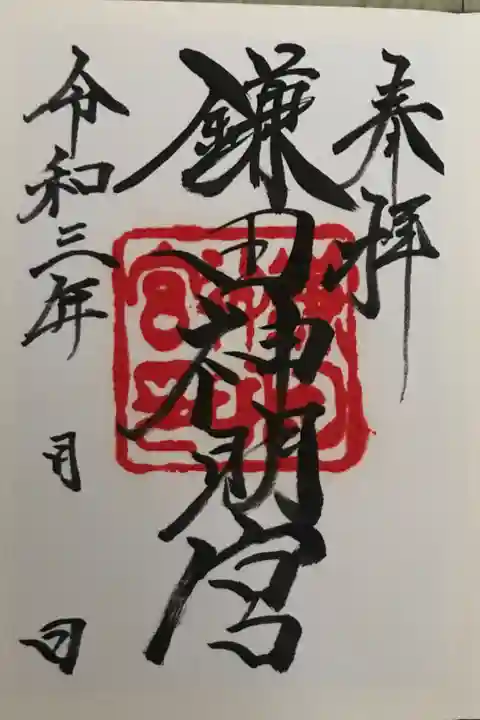 奉拝
鎌田神明宮
令和三年 月 日